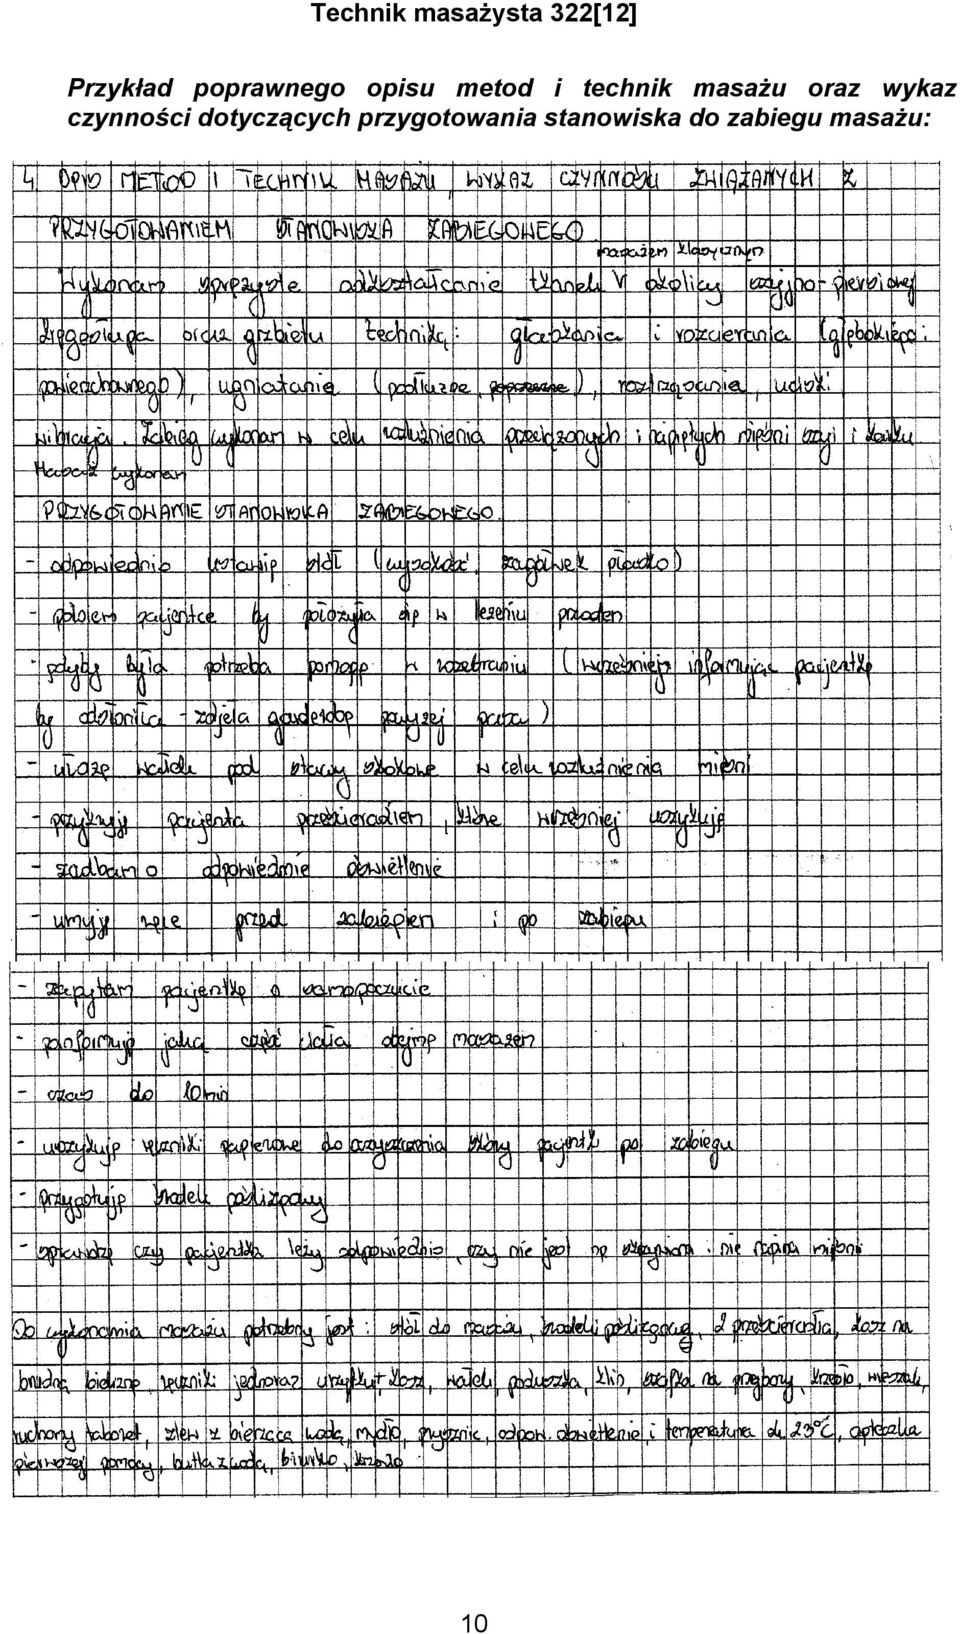 Technik masażysta 322[12]
Przykład poprawnego opisu metod i technik masażu oraz wykaz
czynności dotyczących przygotowania stanowiska do zabiegu masażu:
4. OPIS METOD I TECHNIK MASAŻU, WYKAZ CZYNNOŚCI ZWIĄZANYCH Z
PRZYGOTOWANIEM STANOWISKA ZABIEGOWEGO
masażem klasycznym
Wykonam sprężyste odkształcanie tkanek V okolicy szyjno-piersiowej
kręgosłupa oraz grzbietu techniką: głaskania i rozcierania (głębokiego i
powierzchownego), ugniatania (podłużne, poprzeczne), roztrząsanie, uciski
wibracja. Zabieg wykonam w celu rozluźnienia przeciążonych i napiętych mięśni szyi i karku
Masaż wykonam
PRZYGOTOWANIE STANOWISKA ZABIEGOWEGO.
- odpowiednio ustawię stół (wysokość, zagłówek płasko)
- polecam pacjentce by położyła się w leżeniu przodem
- gdyby była potrzeba pomogę w rozebraniu (wcześniej informując pacjentkę
by odsłoniła - zdjęła garderobę powyżej pasa)
- ułożę wałek pod stawy skokowe w celu rozluźnienia mięśni
- przykryję pacjenta prześcieradłem, które wcześniej uszykuję
- zadbam o odpowiednie oświetlenie
- umyję ręce przed zabiegiem i po zabiegu
- zapytam pacjentkę o samopoczucie
- poinformuję jaką część ciała obejmę masażem
- czas do 10 min
- uszykuję ręczniki papierowe do oczyszczenia skóry pacjentki po zabiegu
- przygotuję środek poślizgowy
- sprawdzę czy pacjentka leży odpowiednio, czy nie jest i nie napina mięśni
Do wykonania masażu potrzebny jest: stół do masażu, środek poślizgowy, 2 prześcieradła, kosz na
brudną bieliznę, ręczniki jednoraz. użytku + kosz, wałek, poduszka, klin, szafka na przybory, krzesło, wieszak,
ruchomy taboret, zlew z bieżącą wodą, mydło, prysznic, odpow. oświetlenie, i temperatura ok. 23°C, apteczka
pierwszej pomocy, butla z wodą, biurko, krzesło
10